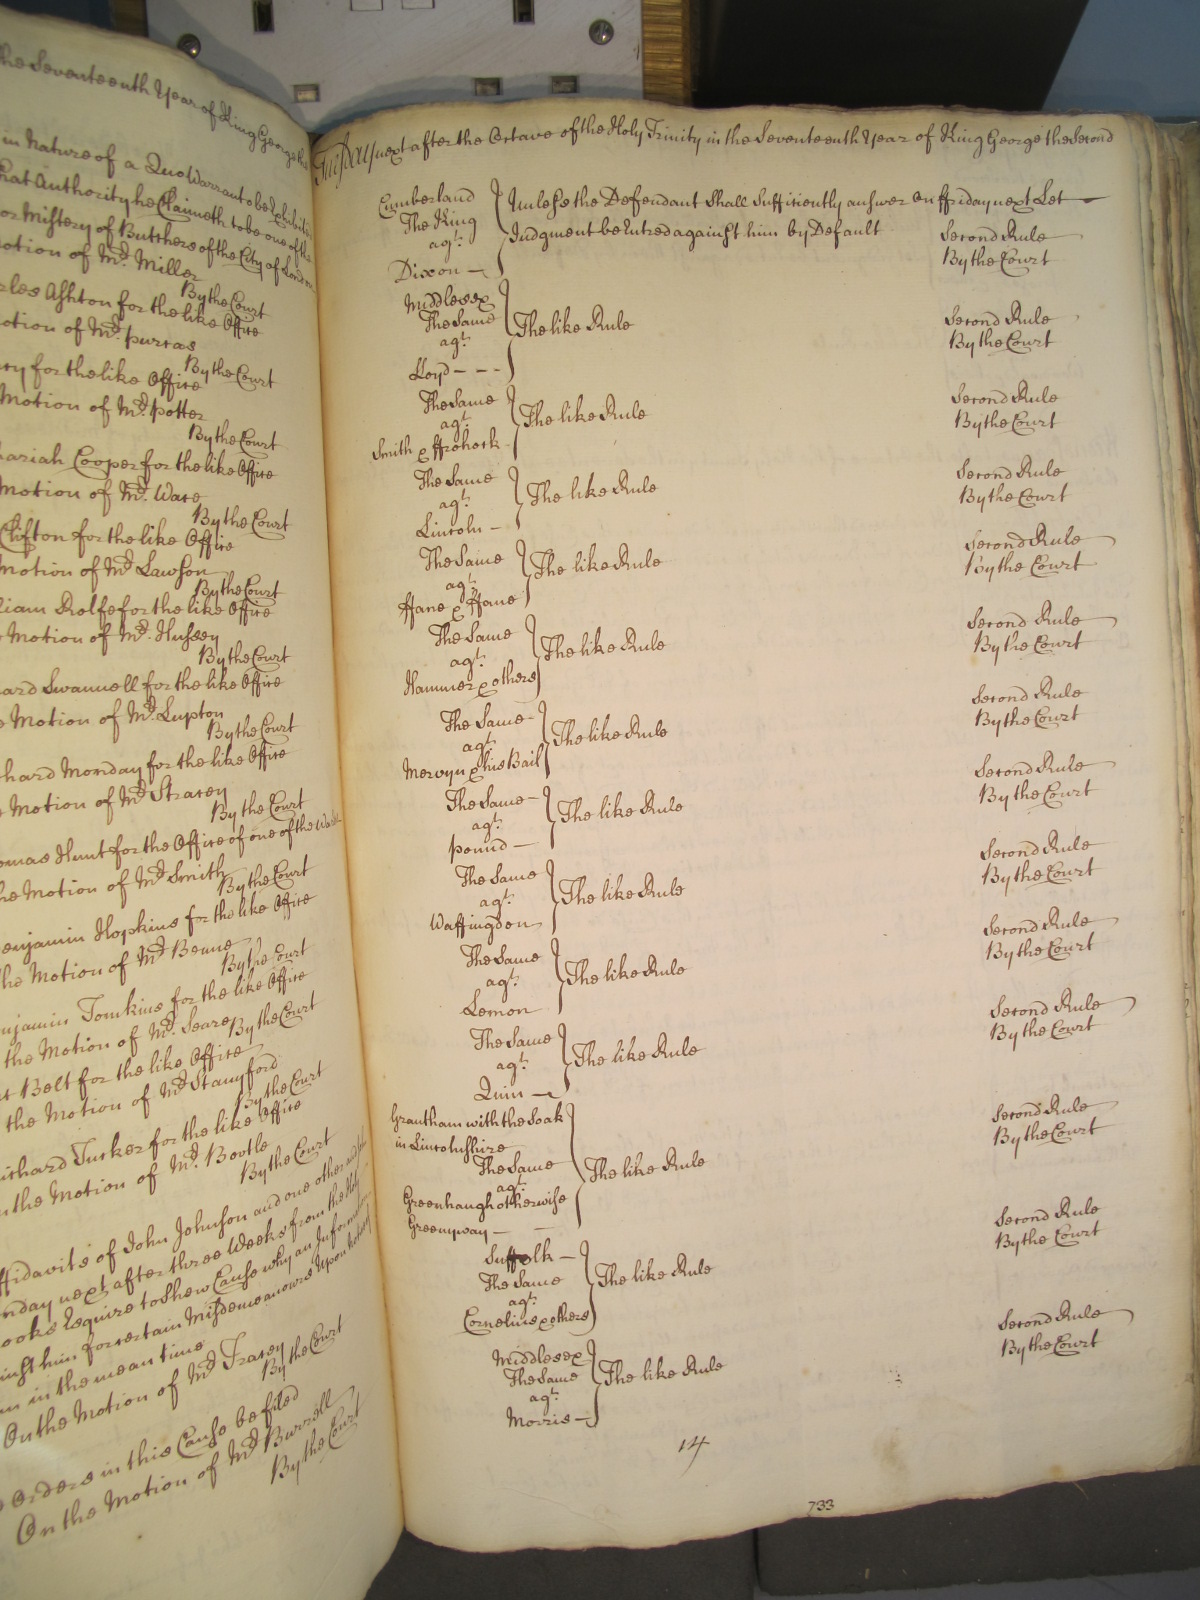 the Seventeenth Year of King George the
in Nature of a Quo Warranto be Exhibited
hat Authority he Claimeth to be one of the
or Mistery of Butchers of the City of London
otion of Mr. Miller
By the Court
rles Ashton for the like Office
otion of Mr. purcas
By the Court
ry for the like Office
Motion of Mr. potter
By the Court
hariah Cooper for the like Office
Motion of Mr. Ware
By the Court
Clifton for the like Office
Motion of Mr Lawson
By the Court
liam Rolfe for the like Office
Motion of Mr. Hussey
By the Court
ard Swannell for the like Office
e Motion of Mr. Lupton
By the Court
hard Monday for the like Office
Motion of Mr Stracey
By the Court
omas Hunt for the Office of one of the
he Motion of Mr Smith
By the Court
enjamin Hopkins for the like Office
the Motion of Mr Benne
By the Court
njamin Tomkins for the like Office
the Motion of Mr. Seare
By the Court
rt Belt for the like Office
the Motion of Mr Stamford
By the Court
ichard Tucker for the like Office
n the Motion of Mr. Bootle
By the Court
ffidavits of John Johnson and one other and
nday next after three Weeks from the Holy
ooks Esquire to Shew Cause why an Information
inst him for certain Misdemeanours upon
in in the mean time
On the Motion of Mr Tracey
By the Court
Orders in this Cause be filed
On the Motion of Mr Burrell
By the Court
Tuesday next after the Octave of the Holy Trinity in the Seventeenth Year of King George the Second
Cumberland
The King
agt.
Dixon
Unless the Defendant Shall Sufficiently answer on ffriday next Let
Judgment be Entred against him by Default
Second Rule
By the Court
Middlesex
The Same
agt.
Lloyd - - -
The like Rule
Second Rule
By the Court
The Same
agt.
Smith & ffrohock
The like Rule
Second Rule
By the Court
The Same
agt.
Lincoln
The like Rule
Second Rule
By the Court
The Same
agt.
ffane & ffane
The like Rule
Second Rule
By the Court
The Same
agt.
Hammer & others
The like Rule
Second Rule
By the Court
The Same
agt.
Mervyn & his Bail
The like Rule
Second Rule
By the Court
The Same
agt.
pound
The like Rule
Second Rule
By the Court
The Same
agt.
Waffingdon
The like Rule
Second Rule
By the Court
The Same
agt.
Lemon
The like Rule
Second Rule
By the Court
The Same
agt.
Quin
The like Rule
Second Rule
By the Court
Grantham with the Soak
in Lincolnshire
The Same
agt.
Greenhaugh otherwise
Greenway
The like Rule
Second Rule
By the Court
Suffolk
The Same
agt.
Cornelius & others
The like Rule
Second Rule
By the Court
Middlesex
The Same
agt.
Morris
The like Rule
Second Rule
By the Court
14
733